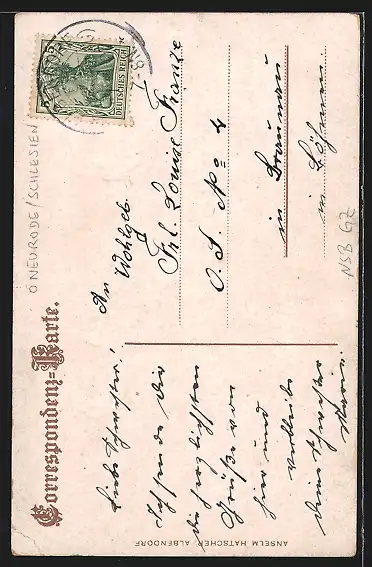 Correspondenz-Karte.
DEUTSCHES REICH
O NEURODE/SCHLESIEN
An Wohlgeb.
Frl. Louise Franze
O. S. No 4
in Braunau
in Böhmen
NSB GZ
Liebe Schwester!
Ich sende Dir
die herzlichsten
Grüße von
hier und
verbleibe
Deine Schwester
Marie.
ANSELM HATSCHER, ALBENDORF